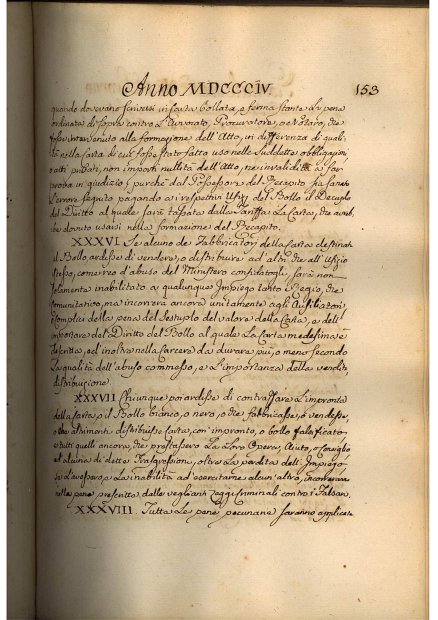 Anno MDCCCIV 153
quando dovevano scriversi in Carta bollata, e ferma stante la pena
ordinata di sopra contro l'Avvocato, Procuratore, o Notaro, che
fosse intervenuto alla formazione dell'Atto, in differenza di quali-
tà nella Carta di cui fosse stato fatto uso nelle Suddette obbligazioni
o atti privati, non importi nullità dell'Atto, ne invalidità a far
prova in giudizio, purchè dal Possessore del Recapito sia Sanato
l'errore seguito pagando ai rispettivi Ufizj del Bollo il Decuplo
del Diritto al quale sarà tassata dalla Tariffa la Carta, che avreb-
be dovuto usarsi nella formazione del Recapito.
XXXVI Se alcuno de Fabbricatori della Carta destinata
il Bollo ardisse di vendere, o distribuire ad altri che all'Ufizio
stesso, come reo d'abuso del Ministero confidatogli, sarà non
solamente inabilitato a qualunque Impiego tanto Regio, che
Comunitativo, ma incorrerà ancora unitamente agli Ausiliatori
e Complici della pena del Sestuplo del valore della Carta, e dell'
importare del Diritto del Bollo al quale la Carta medesima è
descritta, ed inoltre nella Carcere da durare più, o meno secondo
la qualità dell'abuso commesso, e l'importanza della vendita
distribuzione.
XXXVII Chiunque poi ardisse di contraffare l'impronta
della Carta, o il Bollo bianco, o nero, o che fabbricasse, o vendesse
o che altrimenti distribuisse Carta, con impronto, o bollo falsificato
e tutti quelli ancora, che prestassero la loro Opera, Aiuto, o Consiglio
ad alcuna di dette Trasgressioni, oltre la perdita dell'Impiego
se l'avessero, e la inabilità ad esercitarne alcun'altro, incorreranno
nelle pene prescritte dalle veglianti Leggi Criminali contro i Falsari.
XXXVIII. Tutte le pene pecuniarie saranno applicate